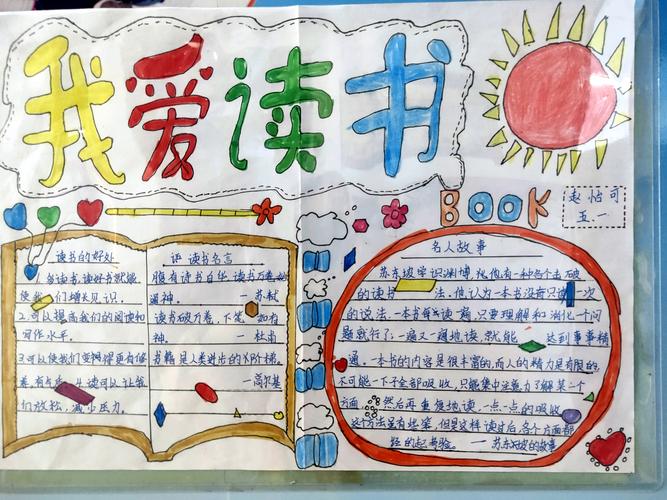 我爱读书
BOOK
赵怡可
五一
读书的好处
1.多读书,读好书就能
使我们增长见识.
2.可以提高我们的阅读和
写作水平.
3.可以使我们变得更有修
养有气质.4.读可以让我
们放松,减少压力.
读书名言
腹有诗书自华,读书万卷始
通神.
一苏轼
读书破万卷,下笔如有
神.
一杜甫
书籍是人类进步的阶梯.
一高尔基
名人故事
苏东坡学识渊博,他有一种各个击破
的读书法.他认为一本书没有只读一次
的说法.一本书每读一遍,只要理解和消化一个问
题就行了,一遍又一遍地读,就能达到事事精
通.一本书的内容是很丰富的,而人的精力是有限的,
不可能一下子全部吸收,只能集中注意力了解某一个
方面,然后再重复地读,一点一点的吸收
这个方法虽有些笨,但是这样读过后,各个方面都
经的起考验.一苏东坡的故事